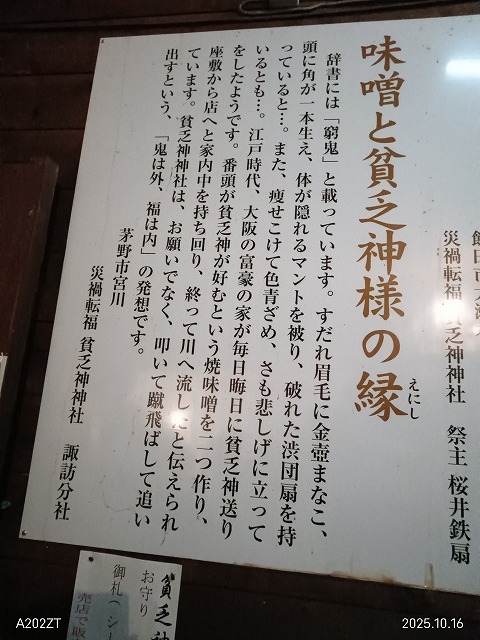 災禍転福 貧乏神神社 祭主 桜井鉄扇
味噌と貧乏神様の縁
えにし
辞書には「窮鬼」と載っています。すだれ眉毛に金壺まなこ、
頭に角が一本生え、体が隠れるマントを被り、破れた渋団扇を持
っていると…。また、痩せこけて色青ざめ、さも悲しげに立って
いるとも…。江戸時代、大阪の富豪の家が毎日晦日に貧乏神送り
をしたようです。番頭が貧乏神が好むという焼味噌を二つ作り、
座敷から店へと家内中を持ち回り、終って川へ流したと伝えられ
ています。貧乏神神社は、お願いでなく、叩いて蹴飛ばして追い
出すという、「鬼は外、福は内」の発想です。
茅野市宮川
災禍転福 貧乏神神社 諏訪分社
貧乏神
お守り
御札(シー
売店で販
A202ZT
2025.10.16